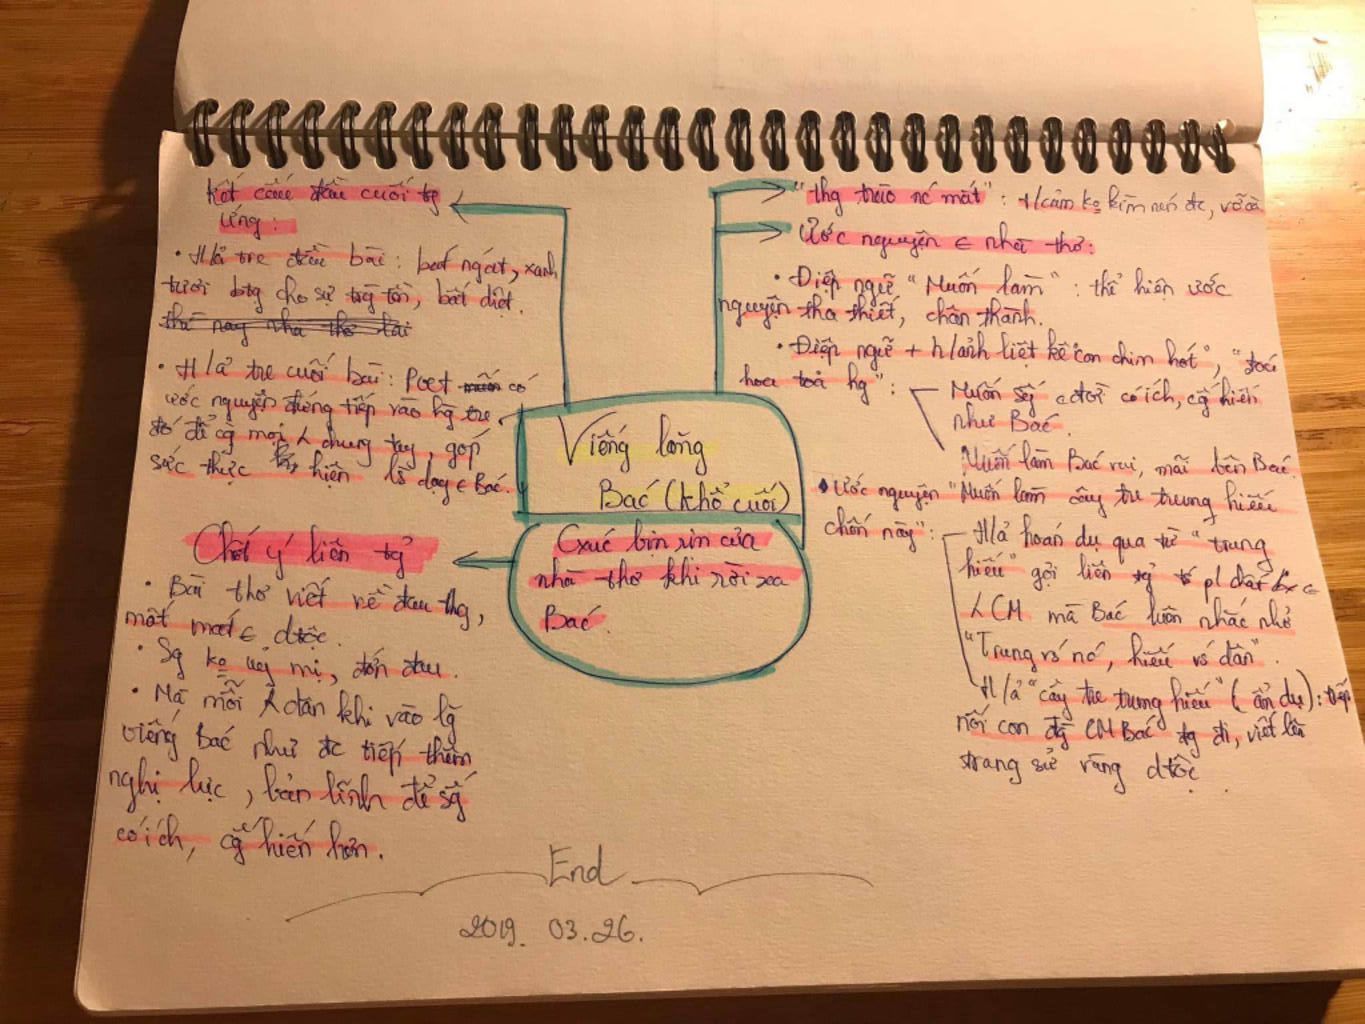 Kết cấu đầu cuối tg
ứng:
• H/ả tre đầu bài: bát ngát, xanh
tươi btg cho sự trg tồn, bất diệt.
thì nay nhà thơ lại
• H/ả tre cuối bài: Poet có
ước nguyện đứng tiếp vào hg tre
đó để cg mọi chung tay, góp
sức thực hiện ls dạy Bác.
Chốt ý liên tg
• Bài thơ viết về đau thg,
mất mát dtộc.
• Sg ko uỷ mị, đớn đau.
• Mà mỗi dân khi vào lg
viếng Bác như đc tiếp thêm
nghị lực, bản lĩnh để sg
có ích, cg hiến hơn.
Viếng lăng
Bác (khổ cuối)
Cxúc bịn rịn của
nhà thơ khi rời xa
Bác.
"thg trào nc mắt": t/cảm ko kìm nén đc, vỡ oà
Ước nguyện nhà thơ:
• Điệp ngữ "Muốn làm": thể hiện ước
nguyện tha thiết, chân thành.
• Điệp ngữ + h/ảnh liệt kê "con chim hót", "đoá
hoa toả hg":
Muốn sg cđời có ích, cg hiến
như Bác.
Muốn làm Bác vui, mãi bên Bác
• Ước nguyện "Muốn làm cây tre trung hiếu
chốn này":
H/ả hoán dụ qua từ "trung
hiếu" gợi liên tg pl đạo
CM mà Bác luôn nhắc nhở
"Trung vs nc, hiếu vs dân".
H/ả "cây tre trung hiếu" (ẩn dụ): tiếp
nối con đg CM Bác đg đi, viết lên
trang sử vàng dtộc.
End
2019. 03. 26.